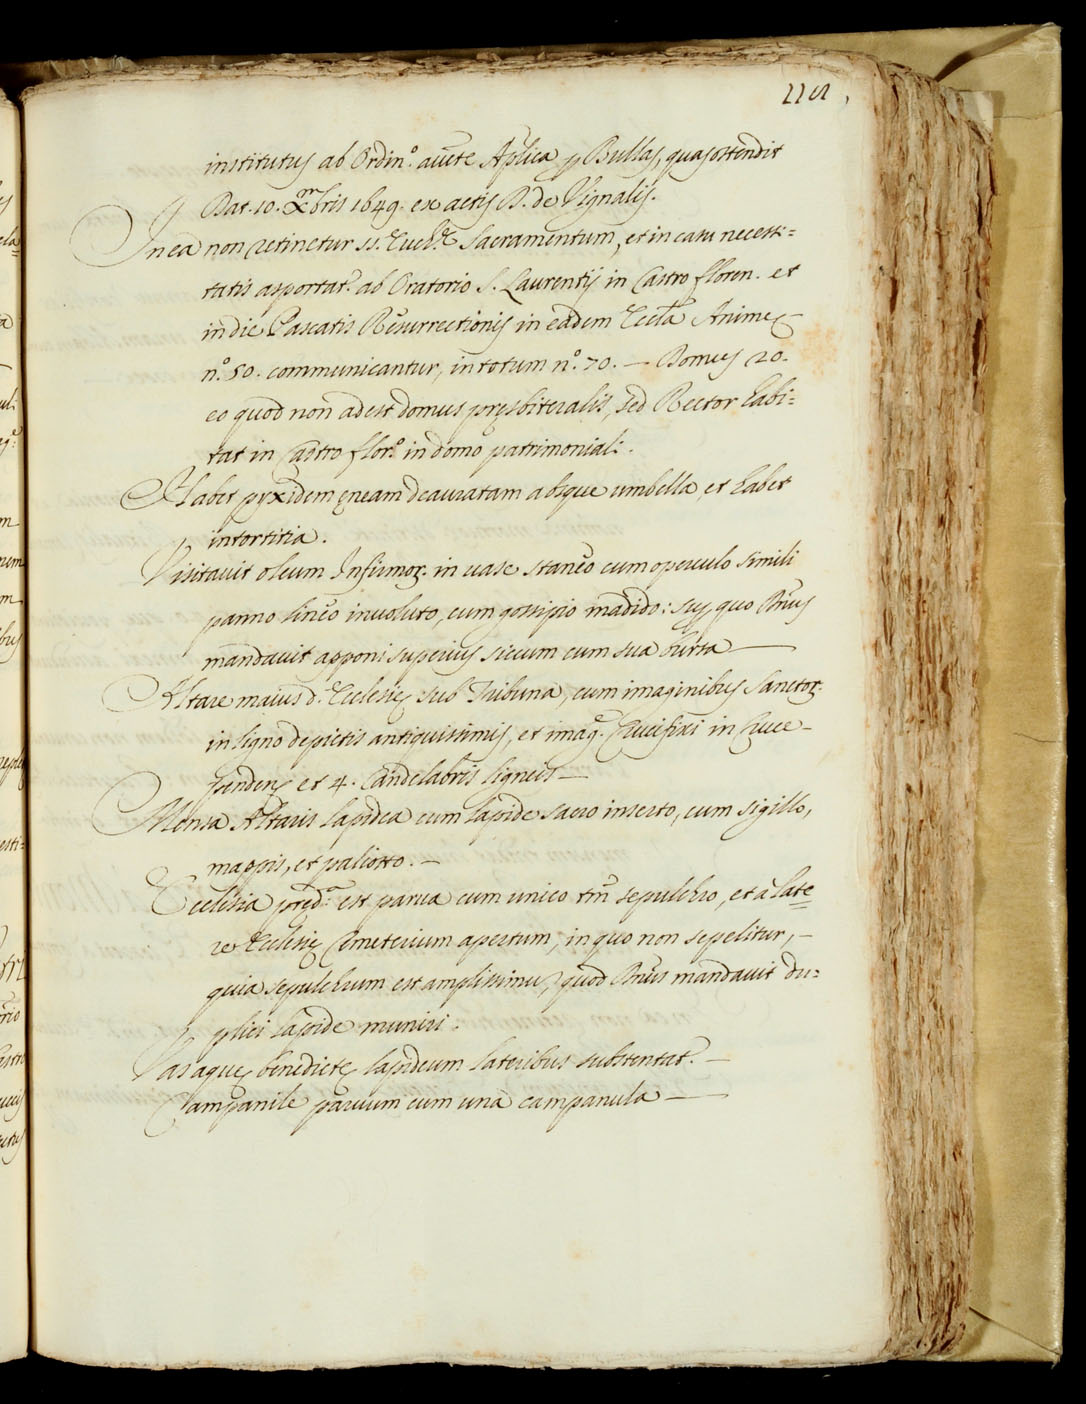 institutus ab Ordin.º aucte Aplica p Bullas, quas ostendit
Dat. 10. Xmbris 1649. ex actis D. de Vignalis.
In ea non retinetur SS. Euch.æ Sacramentum, et in casu necessi=
tatis asportat.r ab Oratorio S. Laurentij in Castro floren. et
in die Pascatis Resurrectionis in eadem Eccla Animę
n.º 50. communicantur, in totum n.º 70. — Domus 20.
eo quod non adest domus pręsbiteralis, sed Rector habi=
tat in Castro flor.º in domo patrimoniali.
Habet pyxidem ęneam deauratam absque umbella, et habet
intortitia.
Visitavit oleum Infirmoꝝ. in vase staneo cum operculo simili
panno lineo involuto, cum gossipio madido: sup quo Dnus
mandavit apponi superius siccum cum sua bursa —
Altare maius d. Ecclesię sub Tribuna, cum imaginibus Sanctoꝝ.
in ligno depictis antiquissimis, et imag.e Crucifixi in Cruce -
pendenę et 4. Candelabris ligneis —
Mensa Altaris lapidea cum lapide sacro inserto, cum sigillo,
mappis, et paliotto. —
Ecclesia pręd.a est parva cum unico tm̃ sepulchro, et à late=
re Ecclesię Cœmeterium apertum, in quo non sepelitur, —
quia sepulchrum est amplissimũ, quod Dnus mandavit du=
plici lapide muniri.
Vas aquę benedictę lapideum lateribus substentat.r —
Campanile parvum cum una campanula —